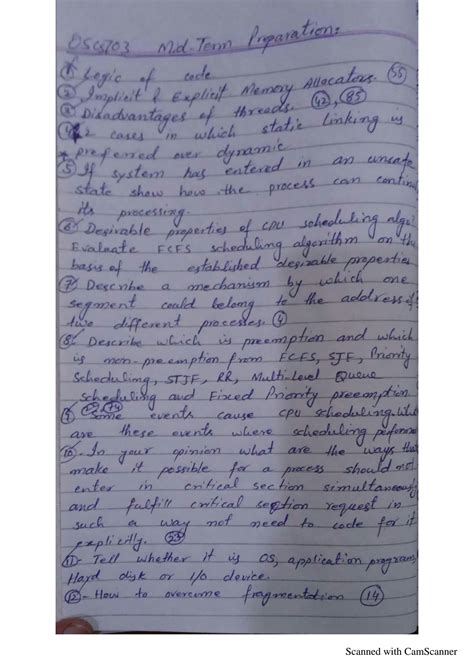 OSCS703 Mid-Term Preparation:
① Logic of code
② Implicit & Explicit Memory Allocators. (55)
③ Disadvantages of threads. (42), (85)
④ 2 cases in which static linking is
preferred over dynamic
⑤ If system has entered in an unsafe
state show how the process can
its processing.
⑥ Desirable properties of CPU scheduling
Evaluate FCFS scheduling algorithm on the
basis of the established desirable properties
⑦ Describe a mechanism by which one
segment could belong to the address of
two different processes. (4)
⑧ Describe which is preemption and which
is non-preemption from FCFS, SJF, Priority
Scheduling, STJF, RR, Multi-Level Queue
Scheduling and Fixed Priority preemption
Some events cause CPU scheduling.
are these events where scheduling
⑩- In your opinion what are the ways that
make it possible for a process should not
enter in critical section simultaneously
and fulfill critical section request in
such a way not need to code for it
explicitly. (23)
⑪- Tell whether it is OS, application
Hard disk or I/O device.
⑫- How to overcome fragmentation (14)
Scanned with CamScanner